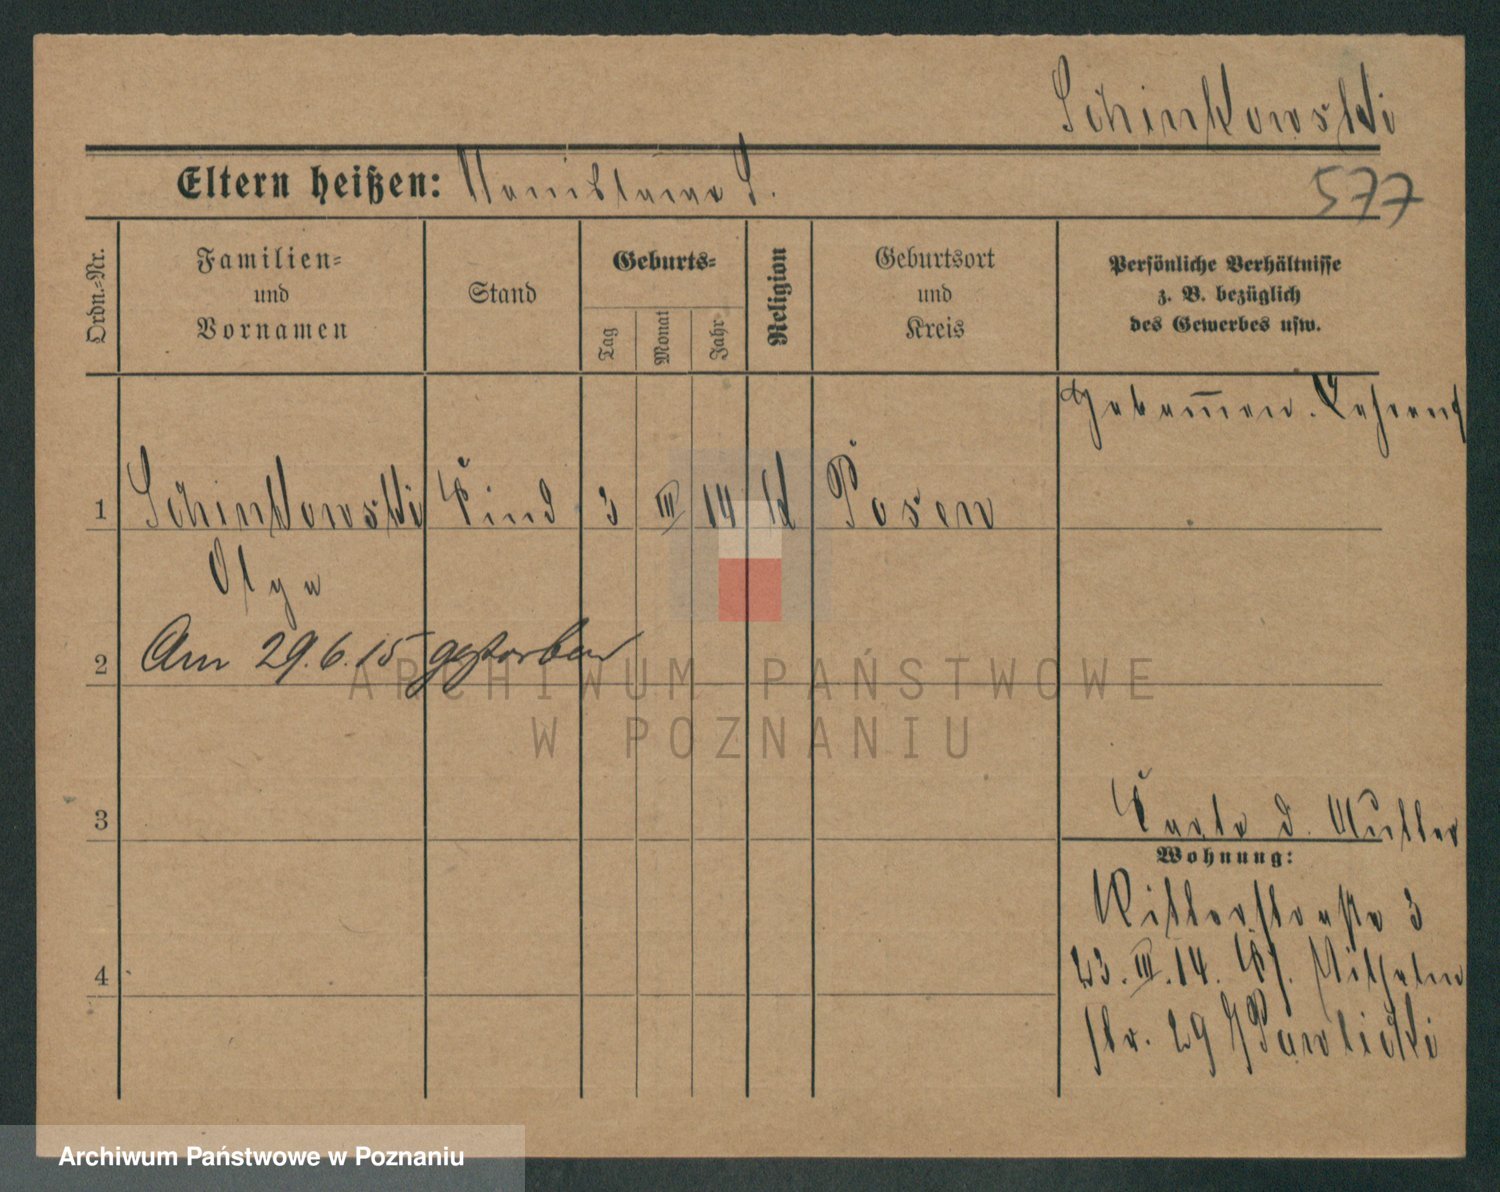 Schinkowski
Eltern heißen: Stanislawa S.
577
Ordn.-Nr.
Familien-
und
Vornamen
Stand
Geburts-
Tag
Monat
Jahr
Religion
Geburtsort
und
Kreis
Persönliche Verhältnisse
z. B. bezüglich
des Gewerbes usw.
Hebammen.
1 Schinkowski Kind 3 III 14 k Posen
Olga
2 Am 29.6.15 gestorben
3
Karte d. Mutter
Wohnung:
Ritterstraße 3
23. III. 14. Wilhelm
str. 29 Pawlicki
4
ARCHIWUM PAŃSTWOWE
W POZNANIU
Archiwum Państwowe w Poznaniu